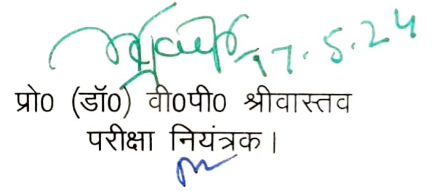 17.5.24
प्रो0 (डॉ0) वी0पी0 श्रीवास्तव
परीक्षा नियंत्रक।